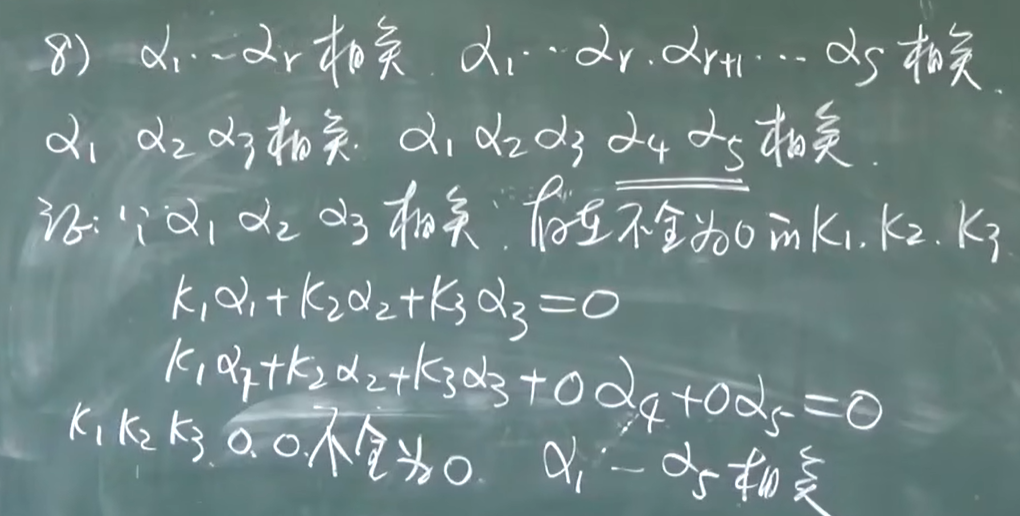 8) α₁…αᵣ相关. α₁…αᵣ.αᵣ₊₁…αₛ相关.
α₁ α₂ α₃相关. α₁ α₂ α₃ α₄ α₅相关.
证:∵α₁ α₂ α₃相关.存在不全为0的K₁.K₂.K₃
K₁α₁+K₂α₂+K₃α₃=0
K₁α₁+K₂α₂+K₃α₃+0α₄+0α₅=0
K₁ K₂ K₃ 0.0.不全为0. α₁–α₅相关